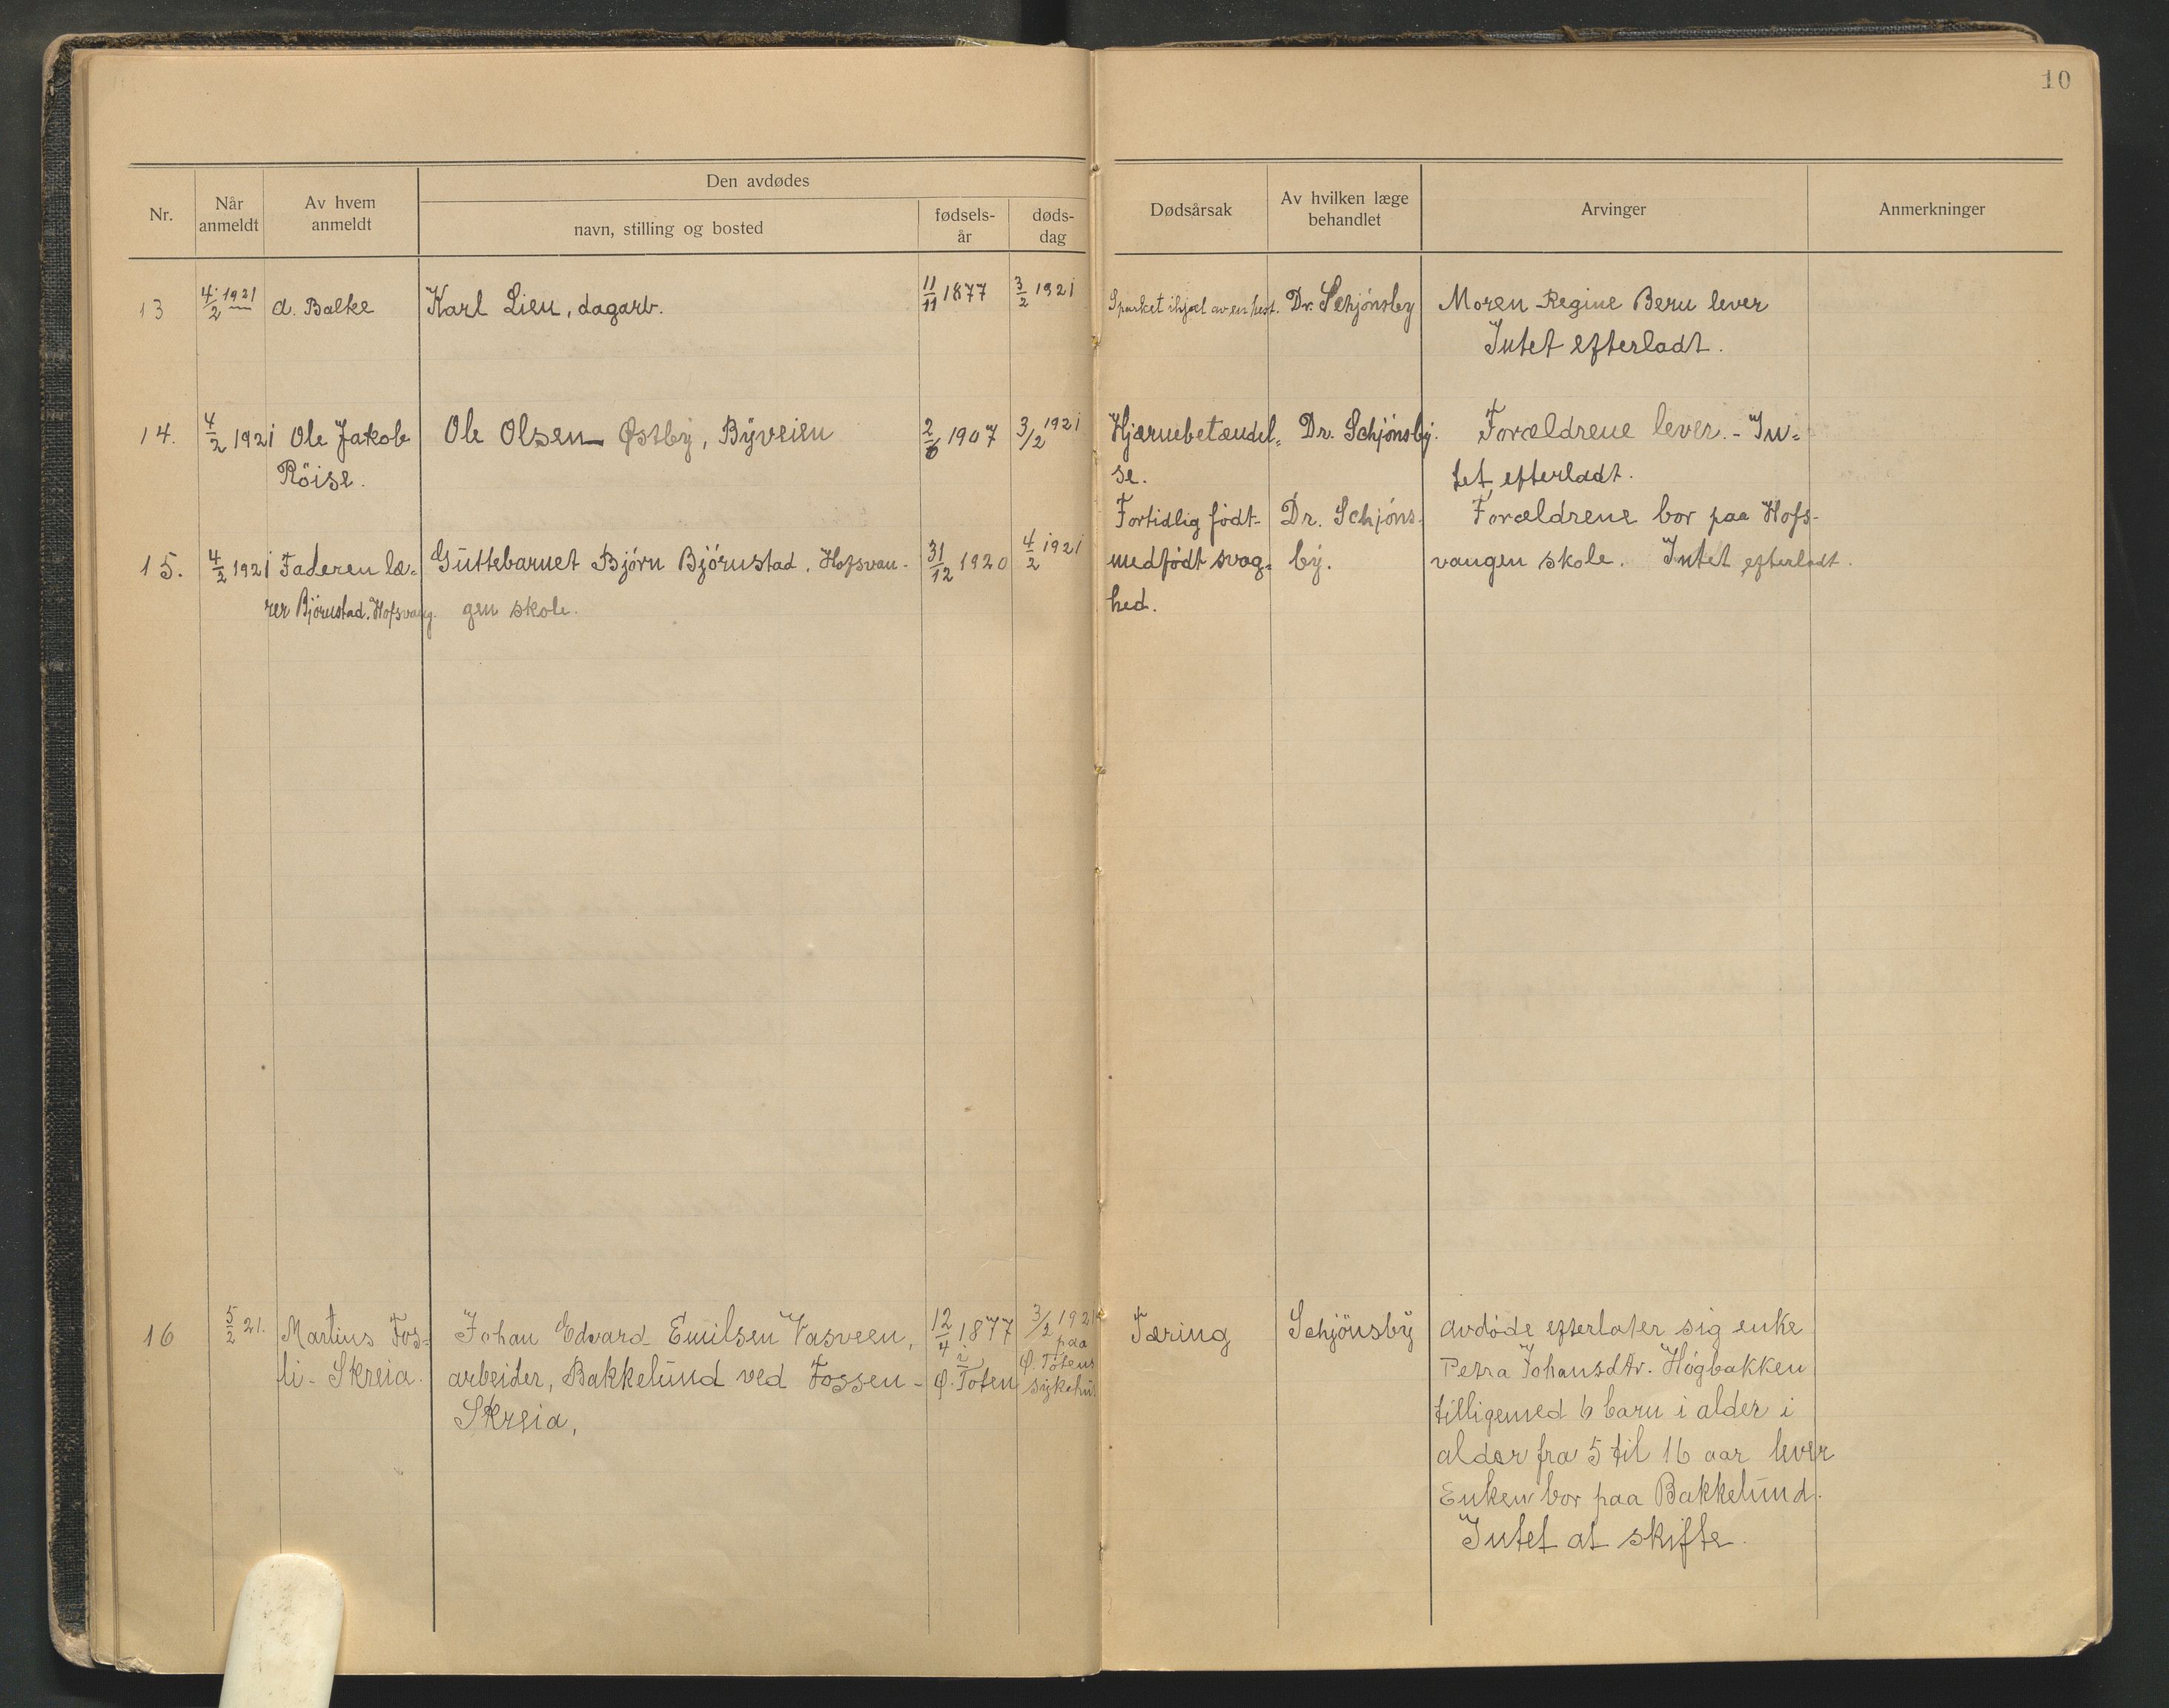 10
Nr.
Når anmeldt
Av hvem anmeldt
Den avdødes
navn, stilling og bosted
fødsels-år
døds-dag
Dødsårsak
Av hvilken læge behandlet
Arvinger
Anmerkninger
13 4/2 1921 A. Balke Karl Lien, dagarb. 11/11 1877 3/2 1921 Sparket ihjæl av en hest. Dr. Schjónsby Moren Regine Bern lever
Intet efterladt.
14. 4/2 1921 Ole Jakob Ole Olsen Østbÿ, Bÿveien 2/6 1907 3/2 1921 Hjærnebetændel= Dr. Schjónsbÿ. Forældrene lever. - In=
Röise. se. tet efterladt.
Fortidlig födt- Dr. Schjóns- Forældrene bor paa Hofs-
15. 4/2 1921 Faderen læ= Guttebarnet Bjórn Bjórnstad. Hofsvan- 31/12 1920 4/2 1921 medfödt svag= bÿ. vangen skole. Intet efterladt.
rer Björnstad. Hofsvang. gen skole. hed.
16 5/2 21. Martins Fos= Johan Edvard Emilsen Vasveen, 12/4 1877 3/2 1921 Tæring Schjönsbÿ Avdóde efterlater sig enke
i paa
li - Skreia. arbeider, Bakkelund ved Fossen - Ø. Toten Ø. Totens sykehus Petra Johansdtr. Högbakken
Skreia, tilligemed 6 barn i alder i
alder fra 5 til 16 aar lever
Enken bor paa Bakkelund.
Intet at skifte.